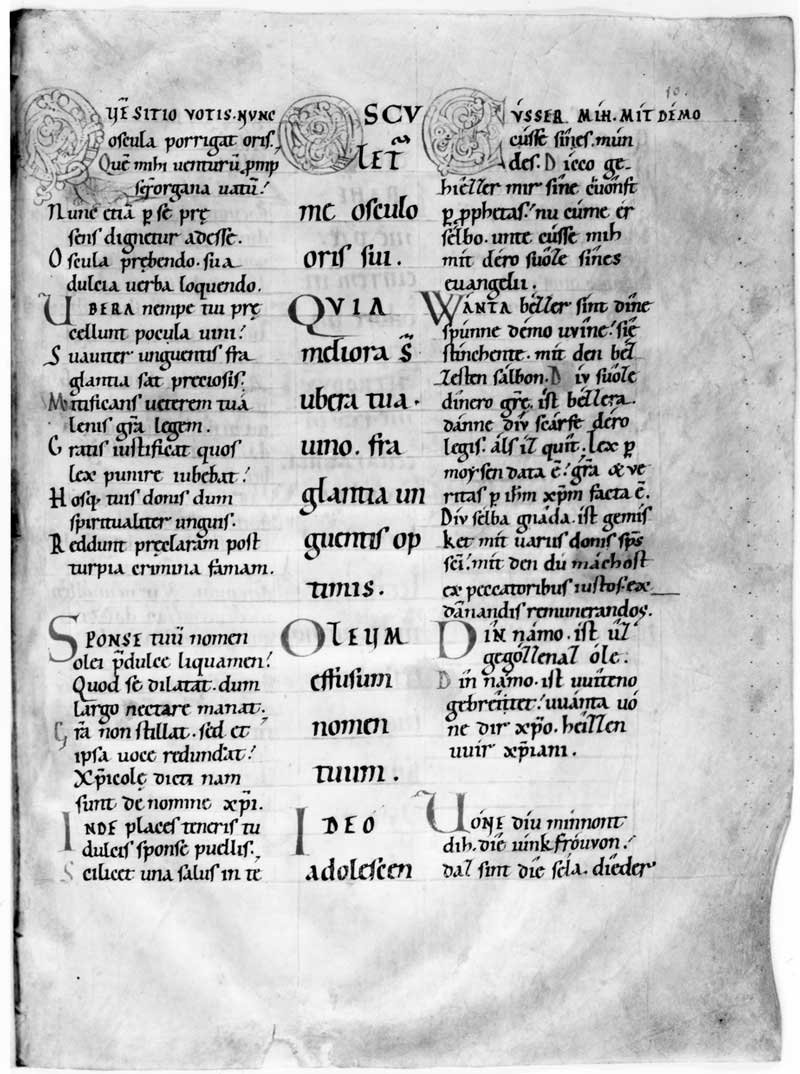 10.
QVĒ SITIO VOTIS. NVNC
oscula porrigat oris.
Quē mihi venturū ꝓmp
ser̄ organa vatū!
Nunc etiā ꝑ se prę
sens dignetur adesse.
Oscula pr̨ebendo. sua
dulcia verba loquendo.
UBERA nempe tui prę
cellunt pocula uini!
Suauiter unguentis fra
glantia sat preciosis.
Mitificans ueterem tuā
lenis gr̄a legem.
Gratis iustificat quos
lex punire iubebat!
Hosq; tuis donis dum
spiritualiter unguis.
Reddunt pręclaram post
turpia crimina famam.
SPONSE tuū nomen
olei p̄dulce liquamen!
Quod se dilatat. dum
largo nectare manat.
Gr̄a non stillat. sed et
ipsa uoce redundat!
Xp̄icolę dicti nam
sunt de nomine xp̄i.
INDE places teneris tu
dulcis sponse puellis.
Scilicet una salus in te
OSCV
LET̄
me osculo
oris sui.
QVIA
meliora s̄
ubera tua.
uino. fra
glantia un
guentis op
timis.
OLEVM
effusum
nomen
tuum.
IDEO
adolescen
CVSSER MIH. MIT DÉMO
cússe sînes. mun
des. Dicco ge
hiêller mir sîne cuônft
ꝑ ꝓphetas! nu cúme ér
sélbo. unte cússe mih
mit déro suôle sînes
euangelii.
WÁNTA béller sint dîne
spúnne démo uuîne! sîe
stínchente. mit den bél
lesten sálbon. Dîv suôle
dínero gr̄e. ist béllera.
dánne dív scárfe déro
legis. áls il quît. lex ꝑ
moysen data ē! gr̄a & ve
ritas ꝑ ih̄m xp̄m facta ē.
Dîv sélba gnâda. ist gemis
ket mit uariis donis sp̄s
sc̄i! mit den dû máchost
ex peccatoribus iustos. ex
dāˉnandis remunerandos.
DÎN námo. ist ûl
gególlenal óle.
Dîn námo. ist uuîteno
gebréitet! uuánta uó
ne dir xp̄o. héillen
uuir xp̄iani.
UÓNE díu mínnont
dih. dîe iúnkfróuvon!
dal sint dîe sêla. dîeder